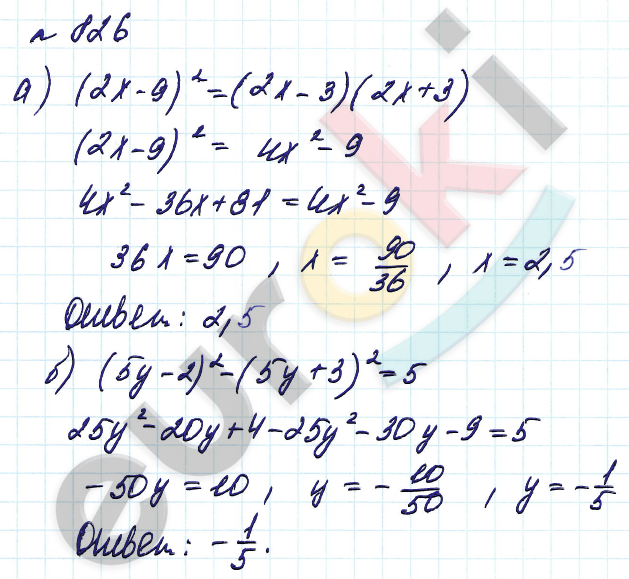 № 826
а) (2x-9)² = (2x-3)(2x+3)
(2x-9)² = 4x²-9
4x² - 36x + 81 = 4x² - 9
36x = 90, x = 90/36, x = 2,5
Ответ: 2,5
б) (5y-2)² - (5y+3)² = 5
25y² - 20y + 4 - 25y² - 30y - 9 = 5
-50y = 10, y = -10/50, y = -1/5
Ответ: -1/5.
euroki